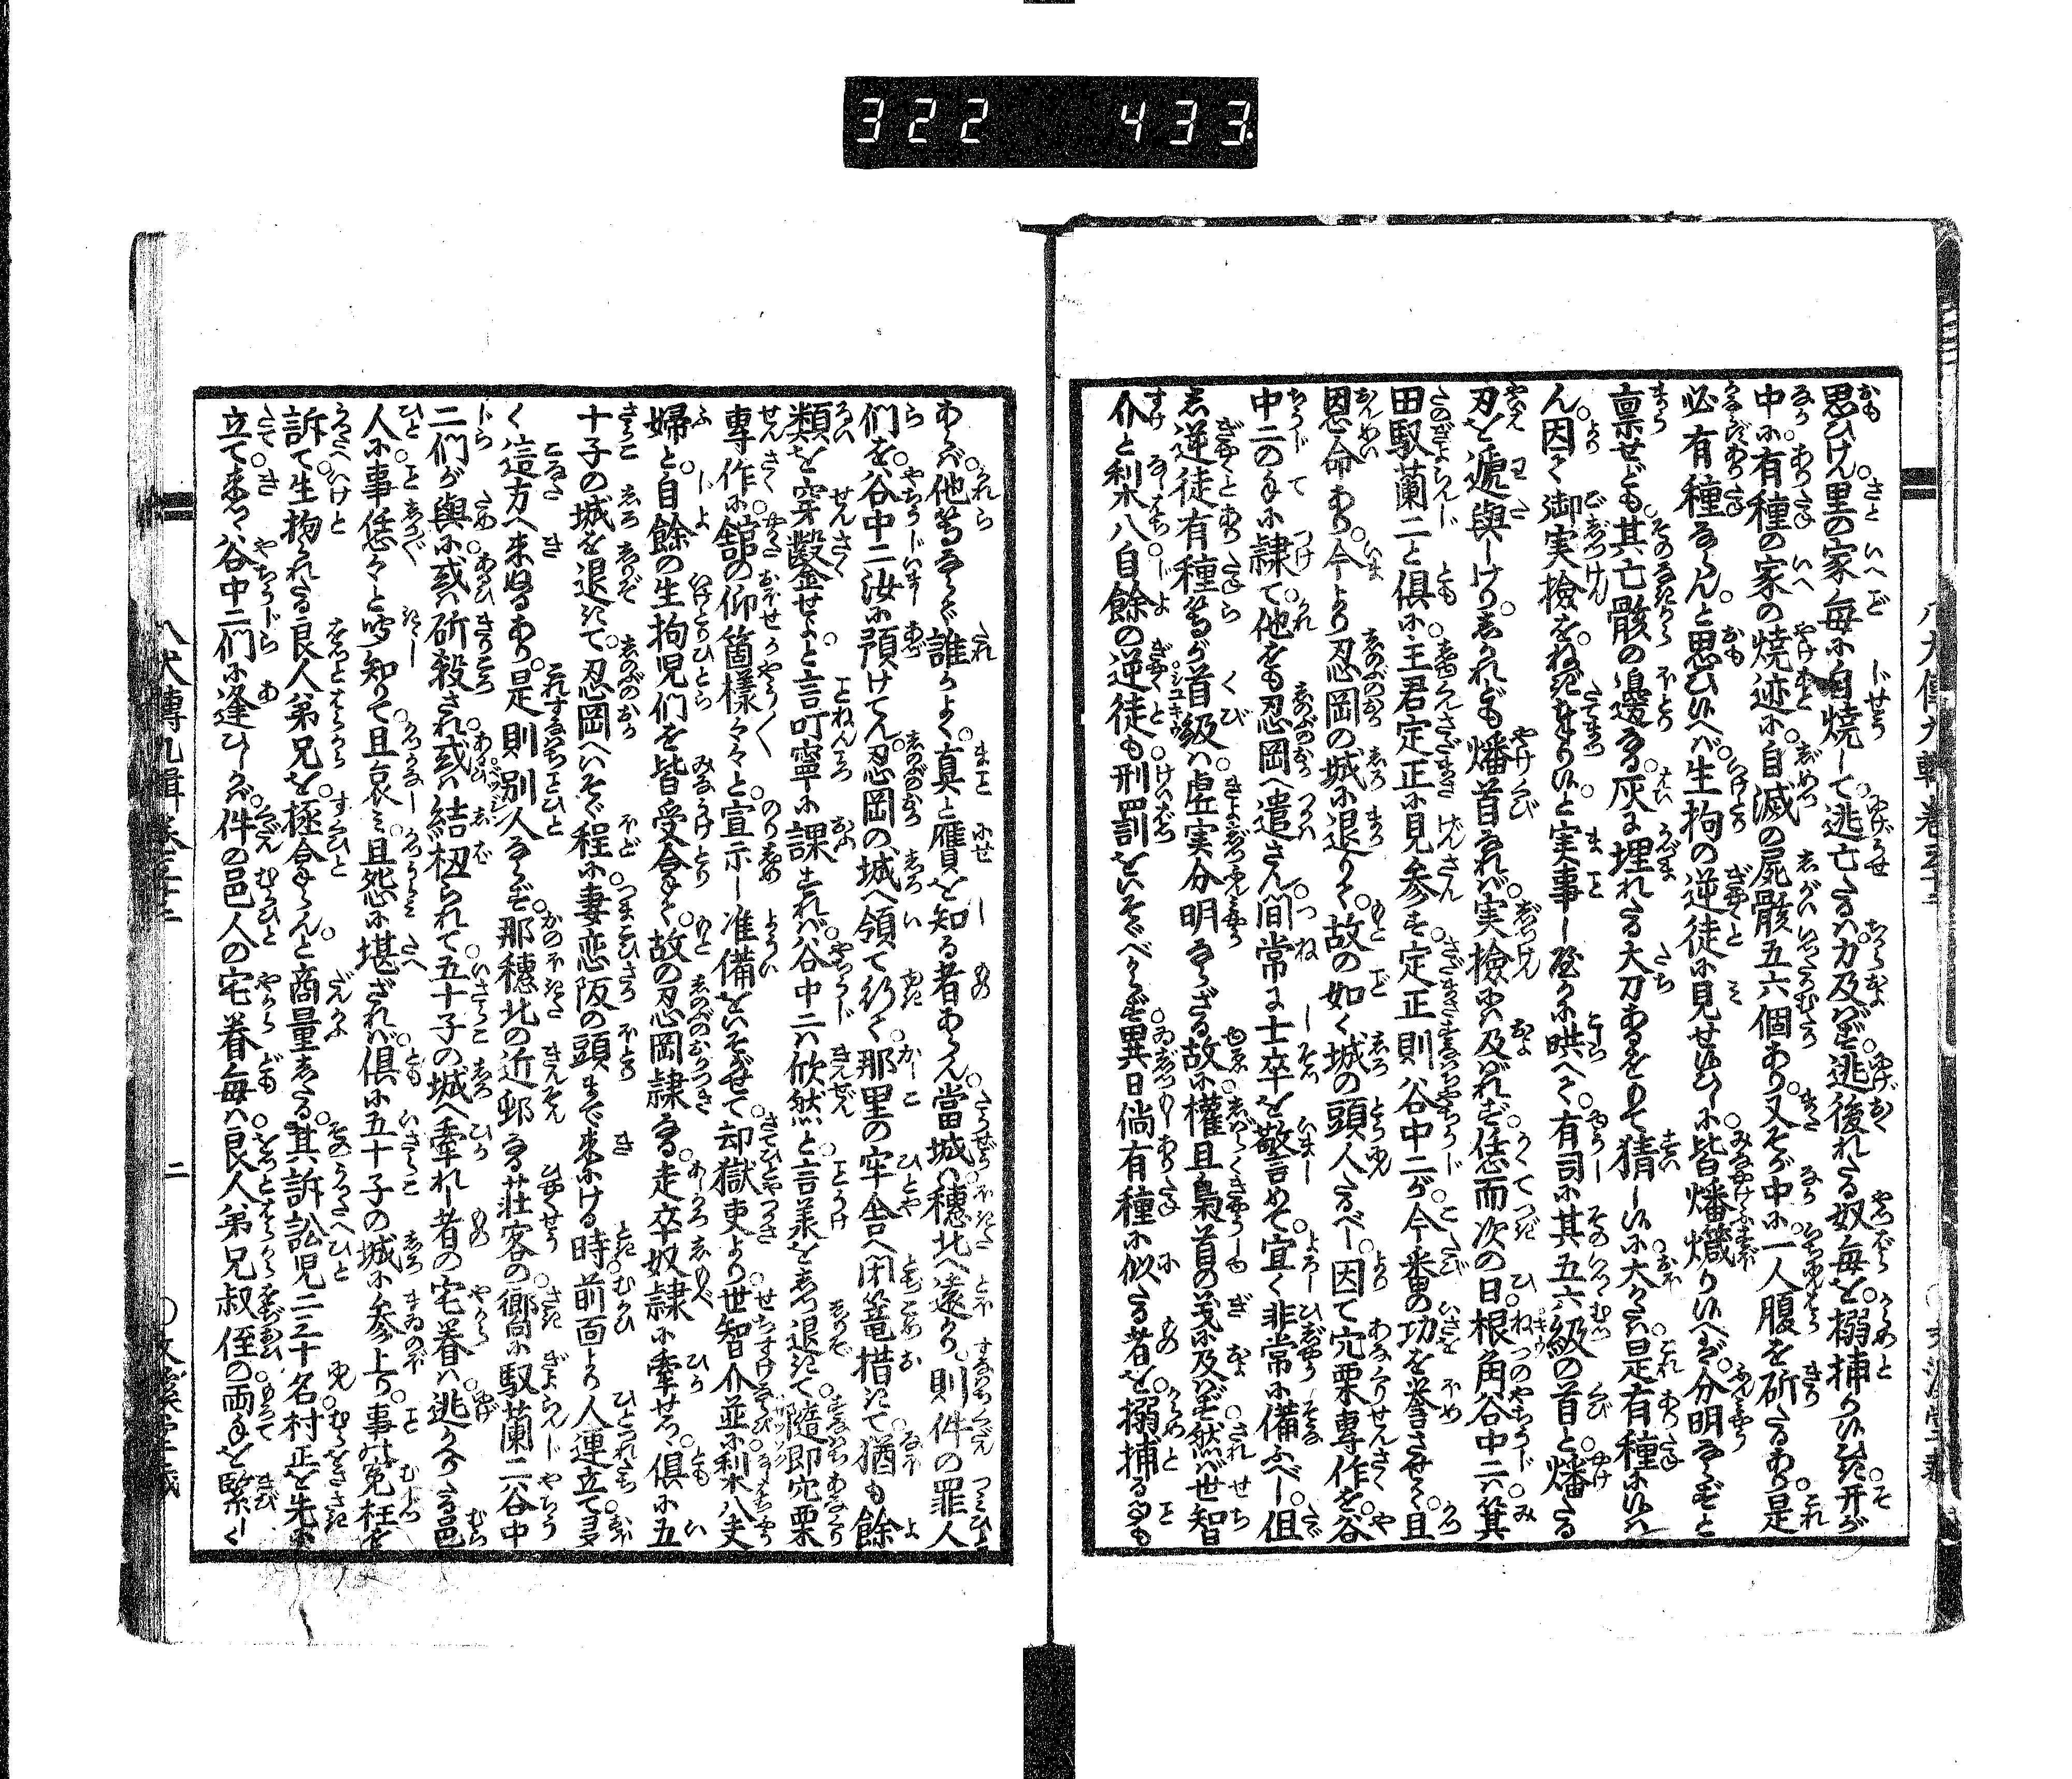 322 433
思ひけん里の家毎に自焼して逃亡たるは力及ばず逃後れたる奴毎を搦捕りい
中に有種の家の焼迹に自滅の屍骸五六個あり又そが中に一人腹を斫たるあり是
必有種ならんと思ひいへば生拘の逆徒に見せいひしに皆燔熾りいへば分明ならずと
禀せども其亡骸の邊なる灰に埋れたる大刀あるをもて猜しいに大く是有種にいは
ん因て御実撿をねぎまつりいと実事しやかに哄へく有司に其五六級の首と燔たる
刃を遞與しけりしかれども燔首なれば実撿に及ばれず恁而次の日根角谷中二穴
田馭蘭二と倶に主君定正に見参す定正則谷中二が今番の功を誉させて且
恩命あり今より忍岡の城に退りて故の如く城の頭人たるべし因て穴栗専作を谷
中二の手に隷て他をも忍岡へ遣さん間常に士卒を警めて宜く非常に備ふべし但
し逆徒有種等が首級は虚実分明ならざる故に權且梟首の義に及ばず然ば世智
介と梨八自餘の逆徒も刑罰をいそぐべからず異日倘有種に似たる者を搦捕ることも
あらば他等ならで誰かよく真と贋を知る者あらん當城は穂北へ遠かり則件の罪人
們を谷中二汝に預けてん忍岡の城へ領て行て那里の牢舎へ閉篭措にて猶も餘
類を穿鑿せよと言叮寧に課されば谷中二は欣然と言美をし退にて隨即穴栗
專作に舘の仰箇樣々々と宣示し准備をいそがせて却獄吏より世智介並に梨八夫
婦と自餘の生拘児們を皆受合て故の忍岡隷なる走卒奴隷に牽せつ倶に五
十子の城を退にて忍岡へいそぐ程に妻恋阪の頭まで来にける時前面より人連立て多
く這方へ来ぬるあり是則別人ならず那穂北の近邨なる荘客の嚮に馭蘭二谷中
二們が與に或は斫殺され或は結扭られて五十子の城へ牽れし者の宅眷は逃かへりたる邑
人に事恁々と吟知りて且哀み且怨に堪ざれば倶に五十子の城に参上り事の冤枉を
訴て生拘られたる良人弟兄を極合らんと商量しつる其訴訟児二三十名村正を先に
立て来つ谷中二們に逢ひしかば件の邑人の宅眷毎は良人弟兄叔侄の両手を緊しく
八犬傳九輯 二